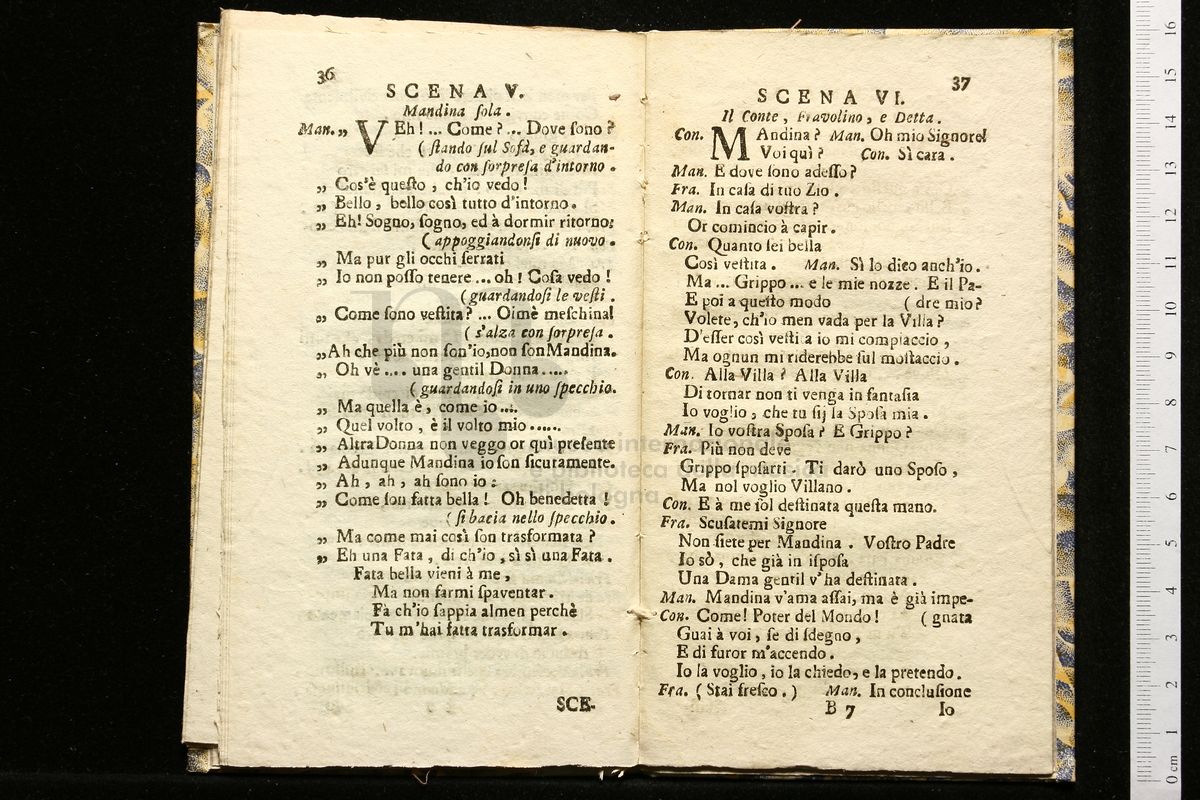 36
SCENA V.
Mandina ſola.
Man. „ VEh! ... Come? ... Dove ſono?
( ſtando ſul Sofà, e guardan-
do con ſorpreſa d'intorno.
„ Cos'è queſto, ch'io vedo!
„ Bello, bello così tutto d'intorno.
„ Eh! Sogno, ſogno, ed à dormir ritorno:
( appoggiandonſi di nuovo.
„ Ma pur gli occhi ſerrati
„ Io non poſſo tenere ... oh! Coſa vedo!
( guardandoſi le veſti.
„ Come ſono veſtita? ... Oimè meſchina!
( s'alza con ſorpreſa.
„ Ah che più non ſon'io, non ſon Mandina.
„ Oh vè .... una gentil Donna .....
( guardandoſi in uno ſpecchio.
„ Ma quella è, come io ....
„ Quel volto, è il volto mio ......
„ Altra Donna non veggo or quì preſente
„ Adunque Mandina io ſon ſicuramente.
„ Ah, ah, ah ſono io:
„ Come ſon fatta bella! Oh benedetta!
( ſi bacia nello ſpecchio.
„ Ma come mai così ſon trasformata?
„ Eh una Fata, di ch'io, sì sì una Fata.
Fata bella vieni à me,
Ma non farmi ſpaventar.
Fà ch'io ſappia almen perchè
Tu m'hai fatta trasformar.
SCE-
37
SCENA VI.
Il Conte, Fravolino, e Detta.
Con. MAndina? Man. Oh mio Signore!
Voi quì? Con. Sì cara.
Man. E dove ſono adeſſo?
Fra. In caſa di tuo Zio.
Man. In caſa voſtra?
Or comincio à capir.
Con. Quanto ſei bella
Così veſtita. Man. Sì lo dico anch'io.
Ma ... Grippo ... e le mie nozze. E il Pa-
E poi a queſto modo ( dre mio?
Volete, ch'io men vada per la Villa?
D'eſſer così veſtita io mi compiaccio,
Ma ognun mi riderebbe ſul moſtaccio.
Con. Alla Villa? Alla Villa
Di tornar non ti venga in fantaſia
Io voglio, che tu ſij la Spoſa mia.
Man. Io voſtra Spoſa? E Grippo?
Fra. Più non deve
Grippo ſpoſarti. Ti darò uno Spoſo,
Ma nol voglio Villano.
Con. E à me ſol deſtinata queſta mano.
Fra. Scuſatemi Signore
Non ſiete per Mandina. Voſtro Padre
Io sò, che già in iſpoſa
Una Dama gentil v'ha deſtinata.
Man. Mandina v'ama aſſai, ma è già impe-
Con. Come! Poter del Mondo! ( gnata
Guai à voi, ſe di ſdegno,
E di furor m'accendo.
Io la voglio, io la chiedo, e la pretendo.
Fra. ( Stai freſco. ) Man. In concluſione
B 7 Io